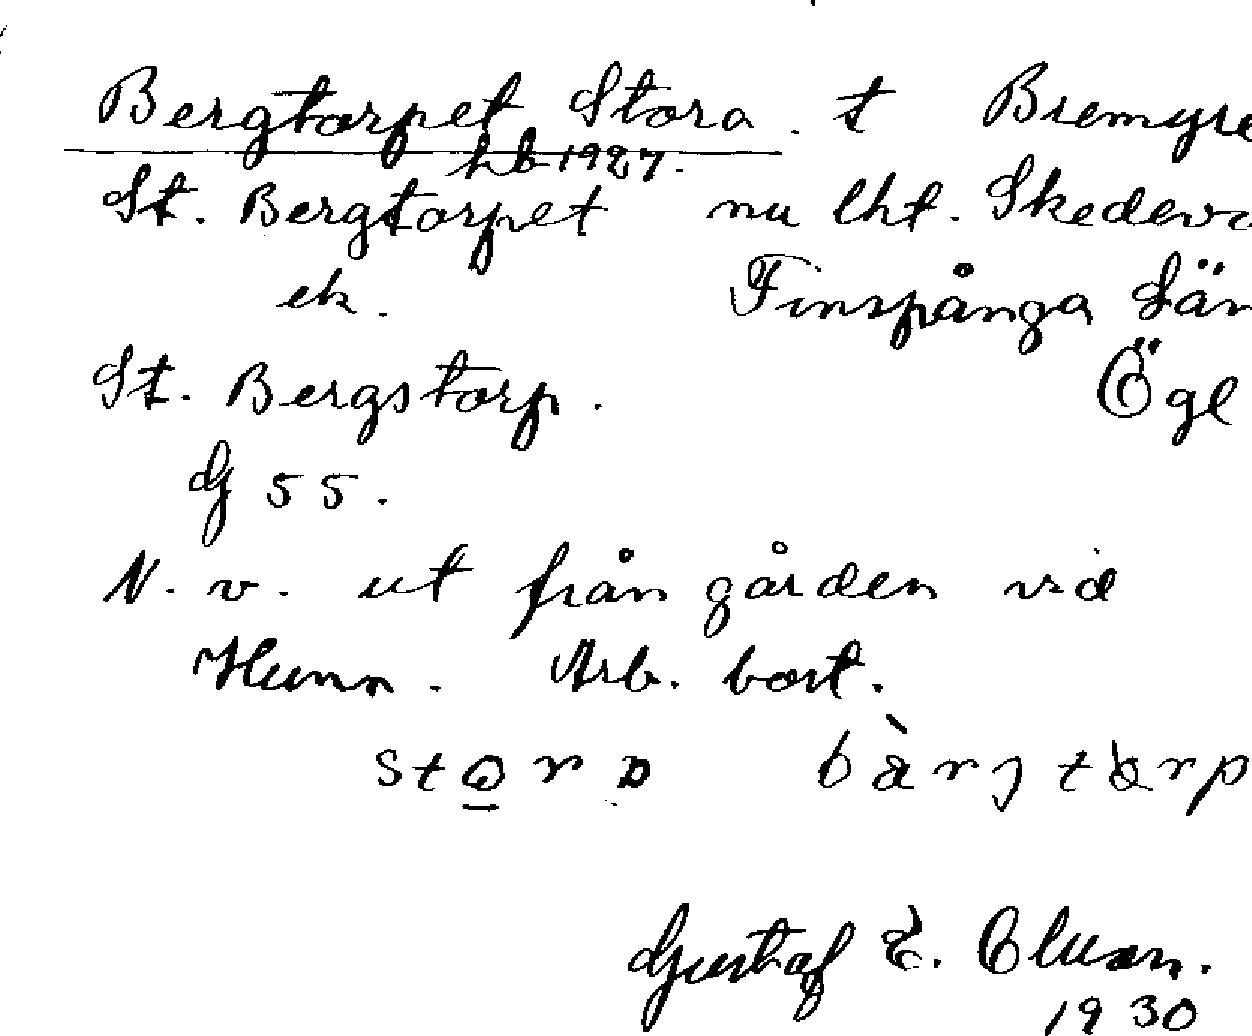 Bergtorpet Stora. t Bremyre
hb 1927.
St. Bergtorpet nu lht. Skedeva
ek. Finspånga Län
St. Bergstorp. Ögl
G 55.
N. v. ut från gården vid
Hunn. Arb. bost.
Gustaf E.
1930